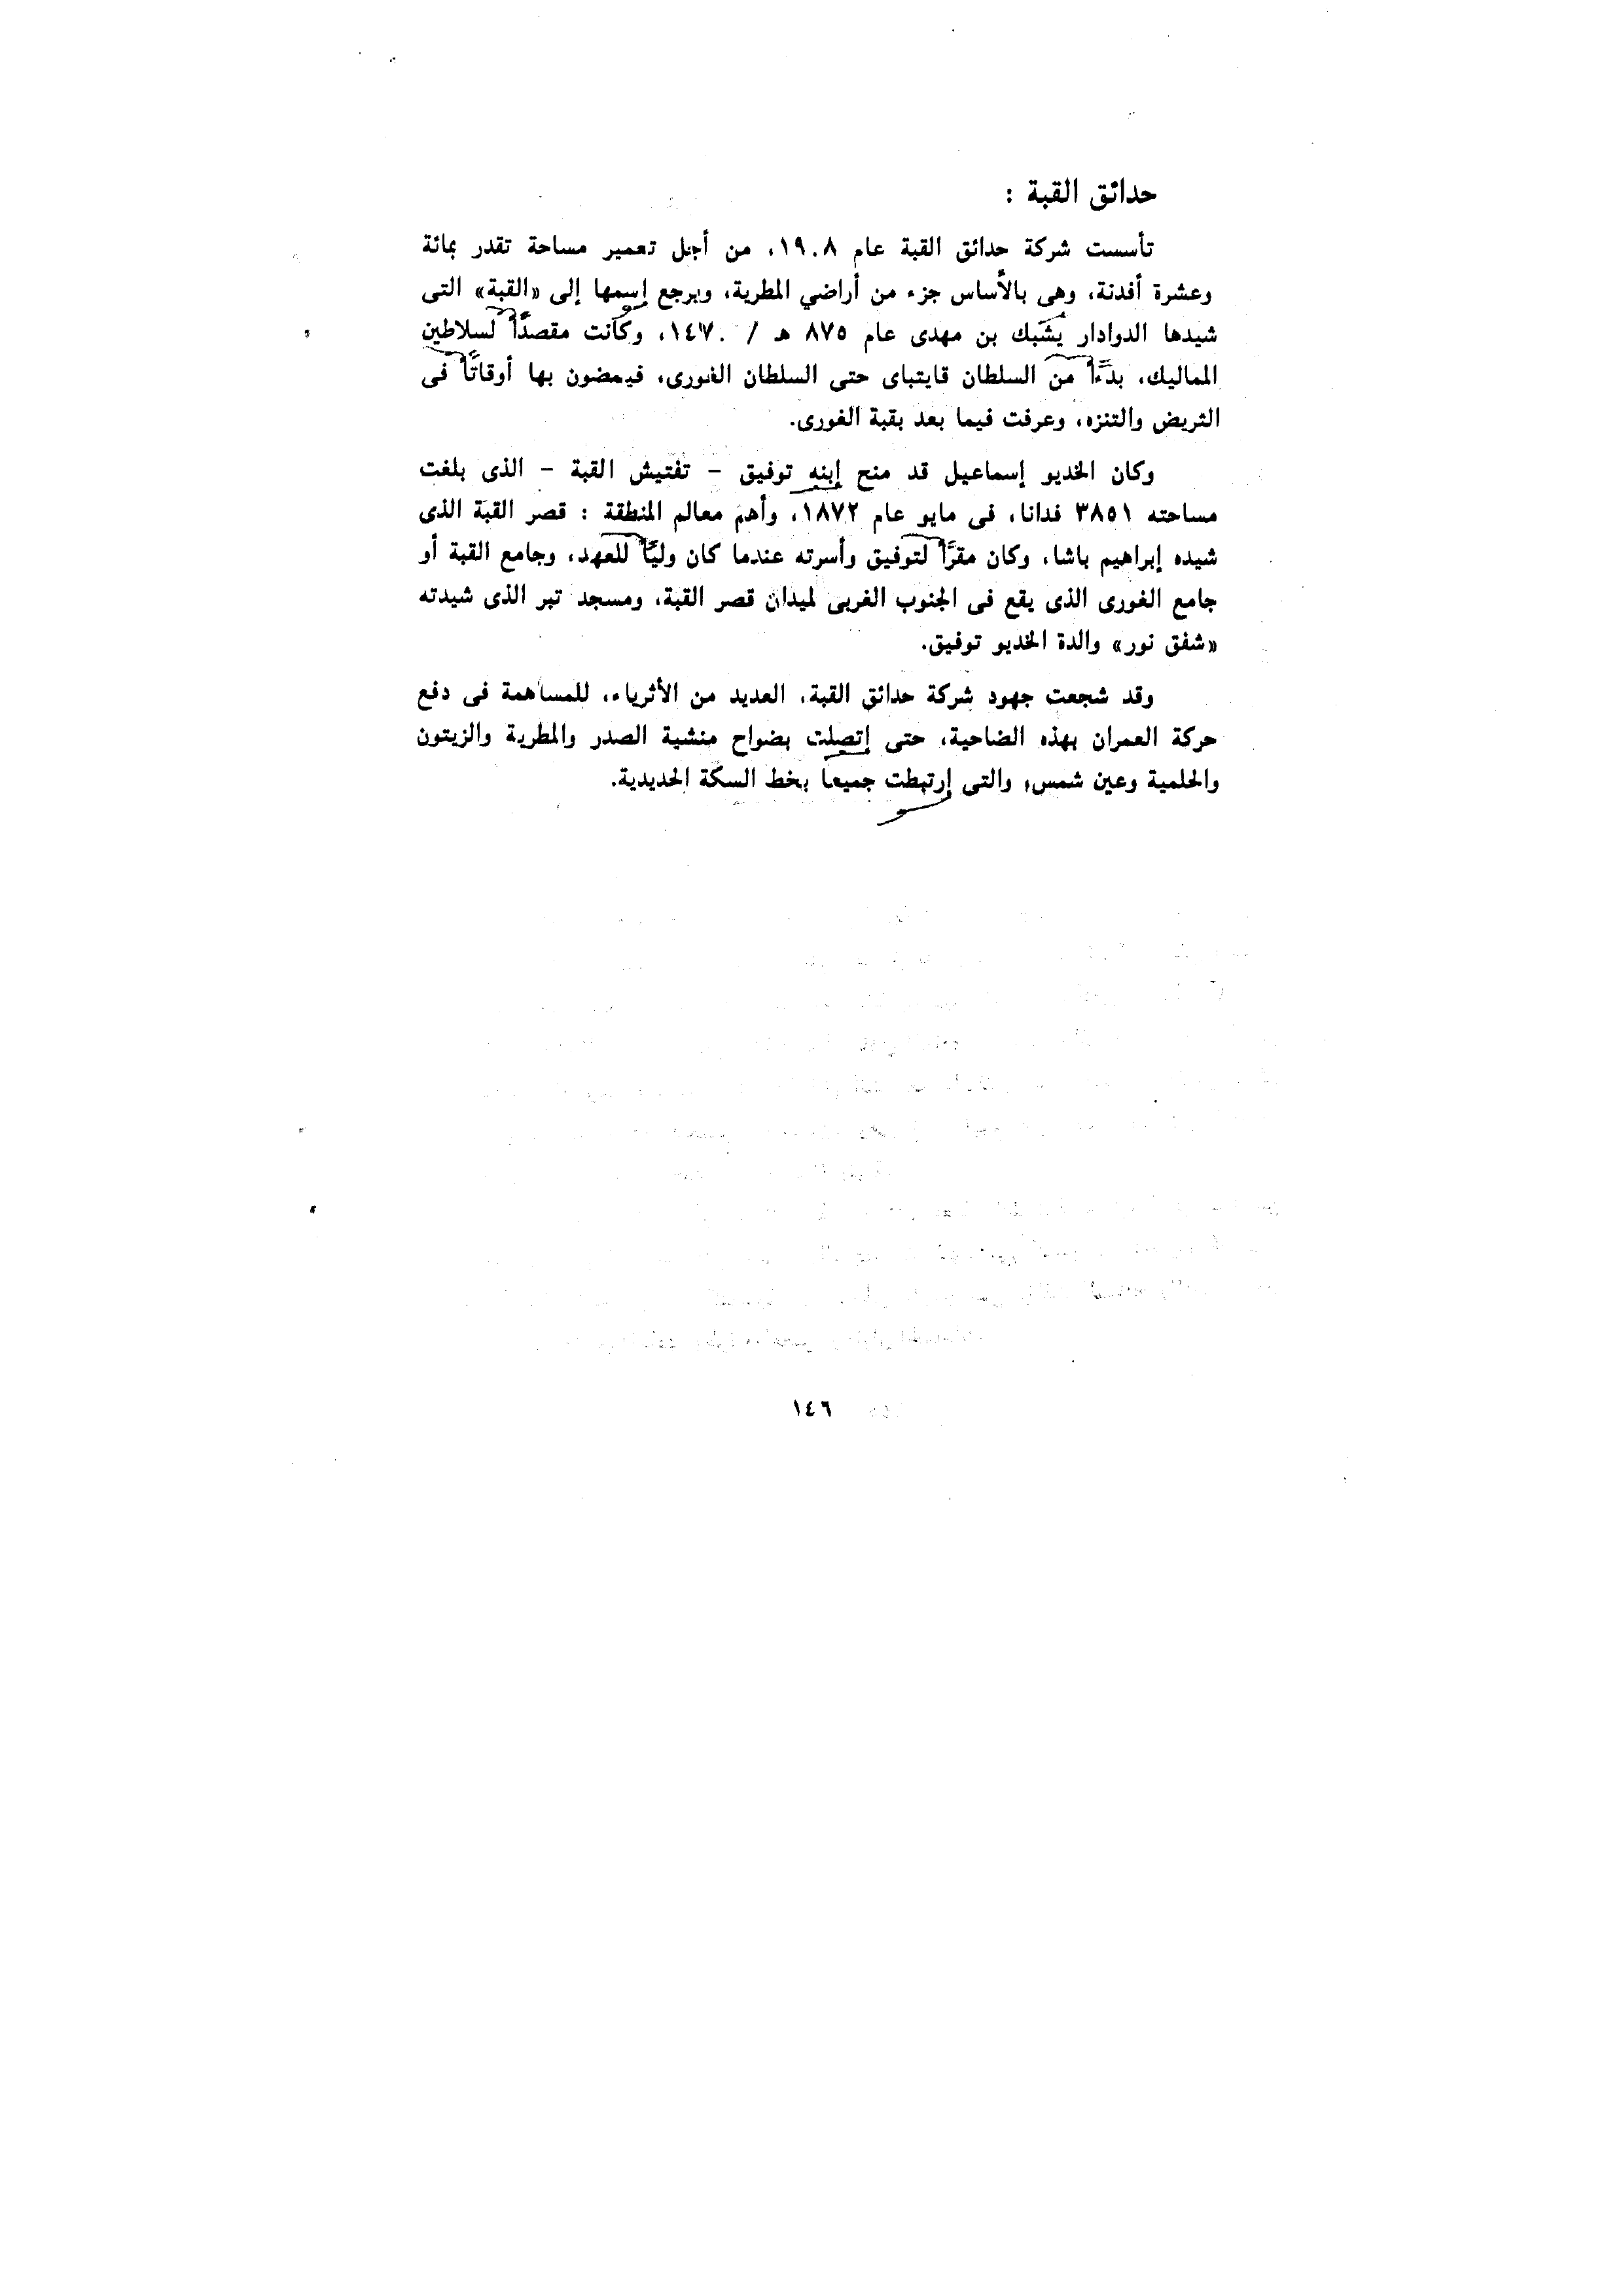 حدائق القبة :
تأسست شركة حدائق القبة عام ١٩٠٨، من أجل تعمير مساحة تقدر بمائة
وعشرة أفدنة، وهى بالأساس جزء من أراضي المطرية، ويرجع إسمها إلى «القبة» التى
شيدها الدوادار يشبك بن مهدى عام ٨٧٥ هـ / ١٤٧٠، وكانت مقصدًا لسلاطين
المماليك، بدءًا من السلطان قايتباى حتى السلطان الغورى، فيمضون بها أوقاتًا فى
التريض والتنزه، وعرفت فيما بعد بقبة الغورى.
وكان الخديو إسماعيل قد منح إبنه توفيق - تفتيش القبة - الذى بلغت
مساحته ٣٨٥١ فدانا، فى مايو عام ١٨٧٢، وأهم معالم المنطقة : قصر القبة الذى
شيده إبراهيم باشا، وكان مقرًا لتوفيق وأسرته عندما كان وليًا للعهد، وجامع القبة أو
جامع الغورى الذى يقع فى الجنوب الغربى لميدان قصر القبة، ومسجد تبر الذى شيدته
«شفق نور» والدة الخديو توفيق.
وقد شجعت جهود شركة حدائق القبة، العديد من الأثرياء، للمساهمة فى دفع
حركة العمران بهذه الضاحية، حتى إتصلت بضواح منشية الصدر والمطرية والزيتون
والحلمية وعين شمس، والتى إرتبطت جميعا بخط السكة الحديدية.
١٤٦